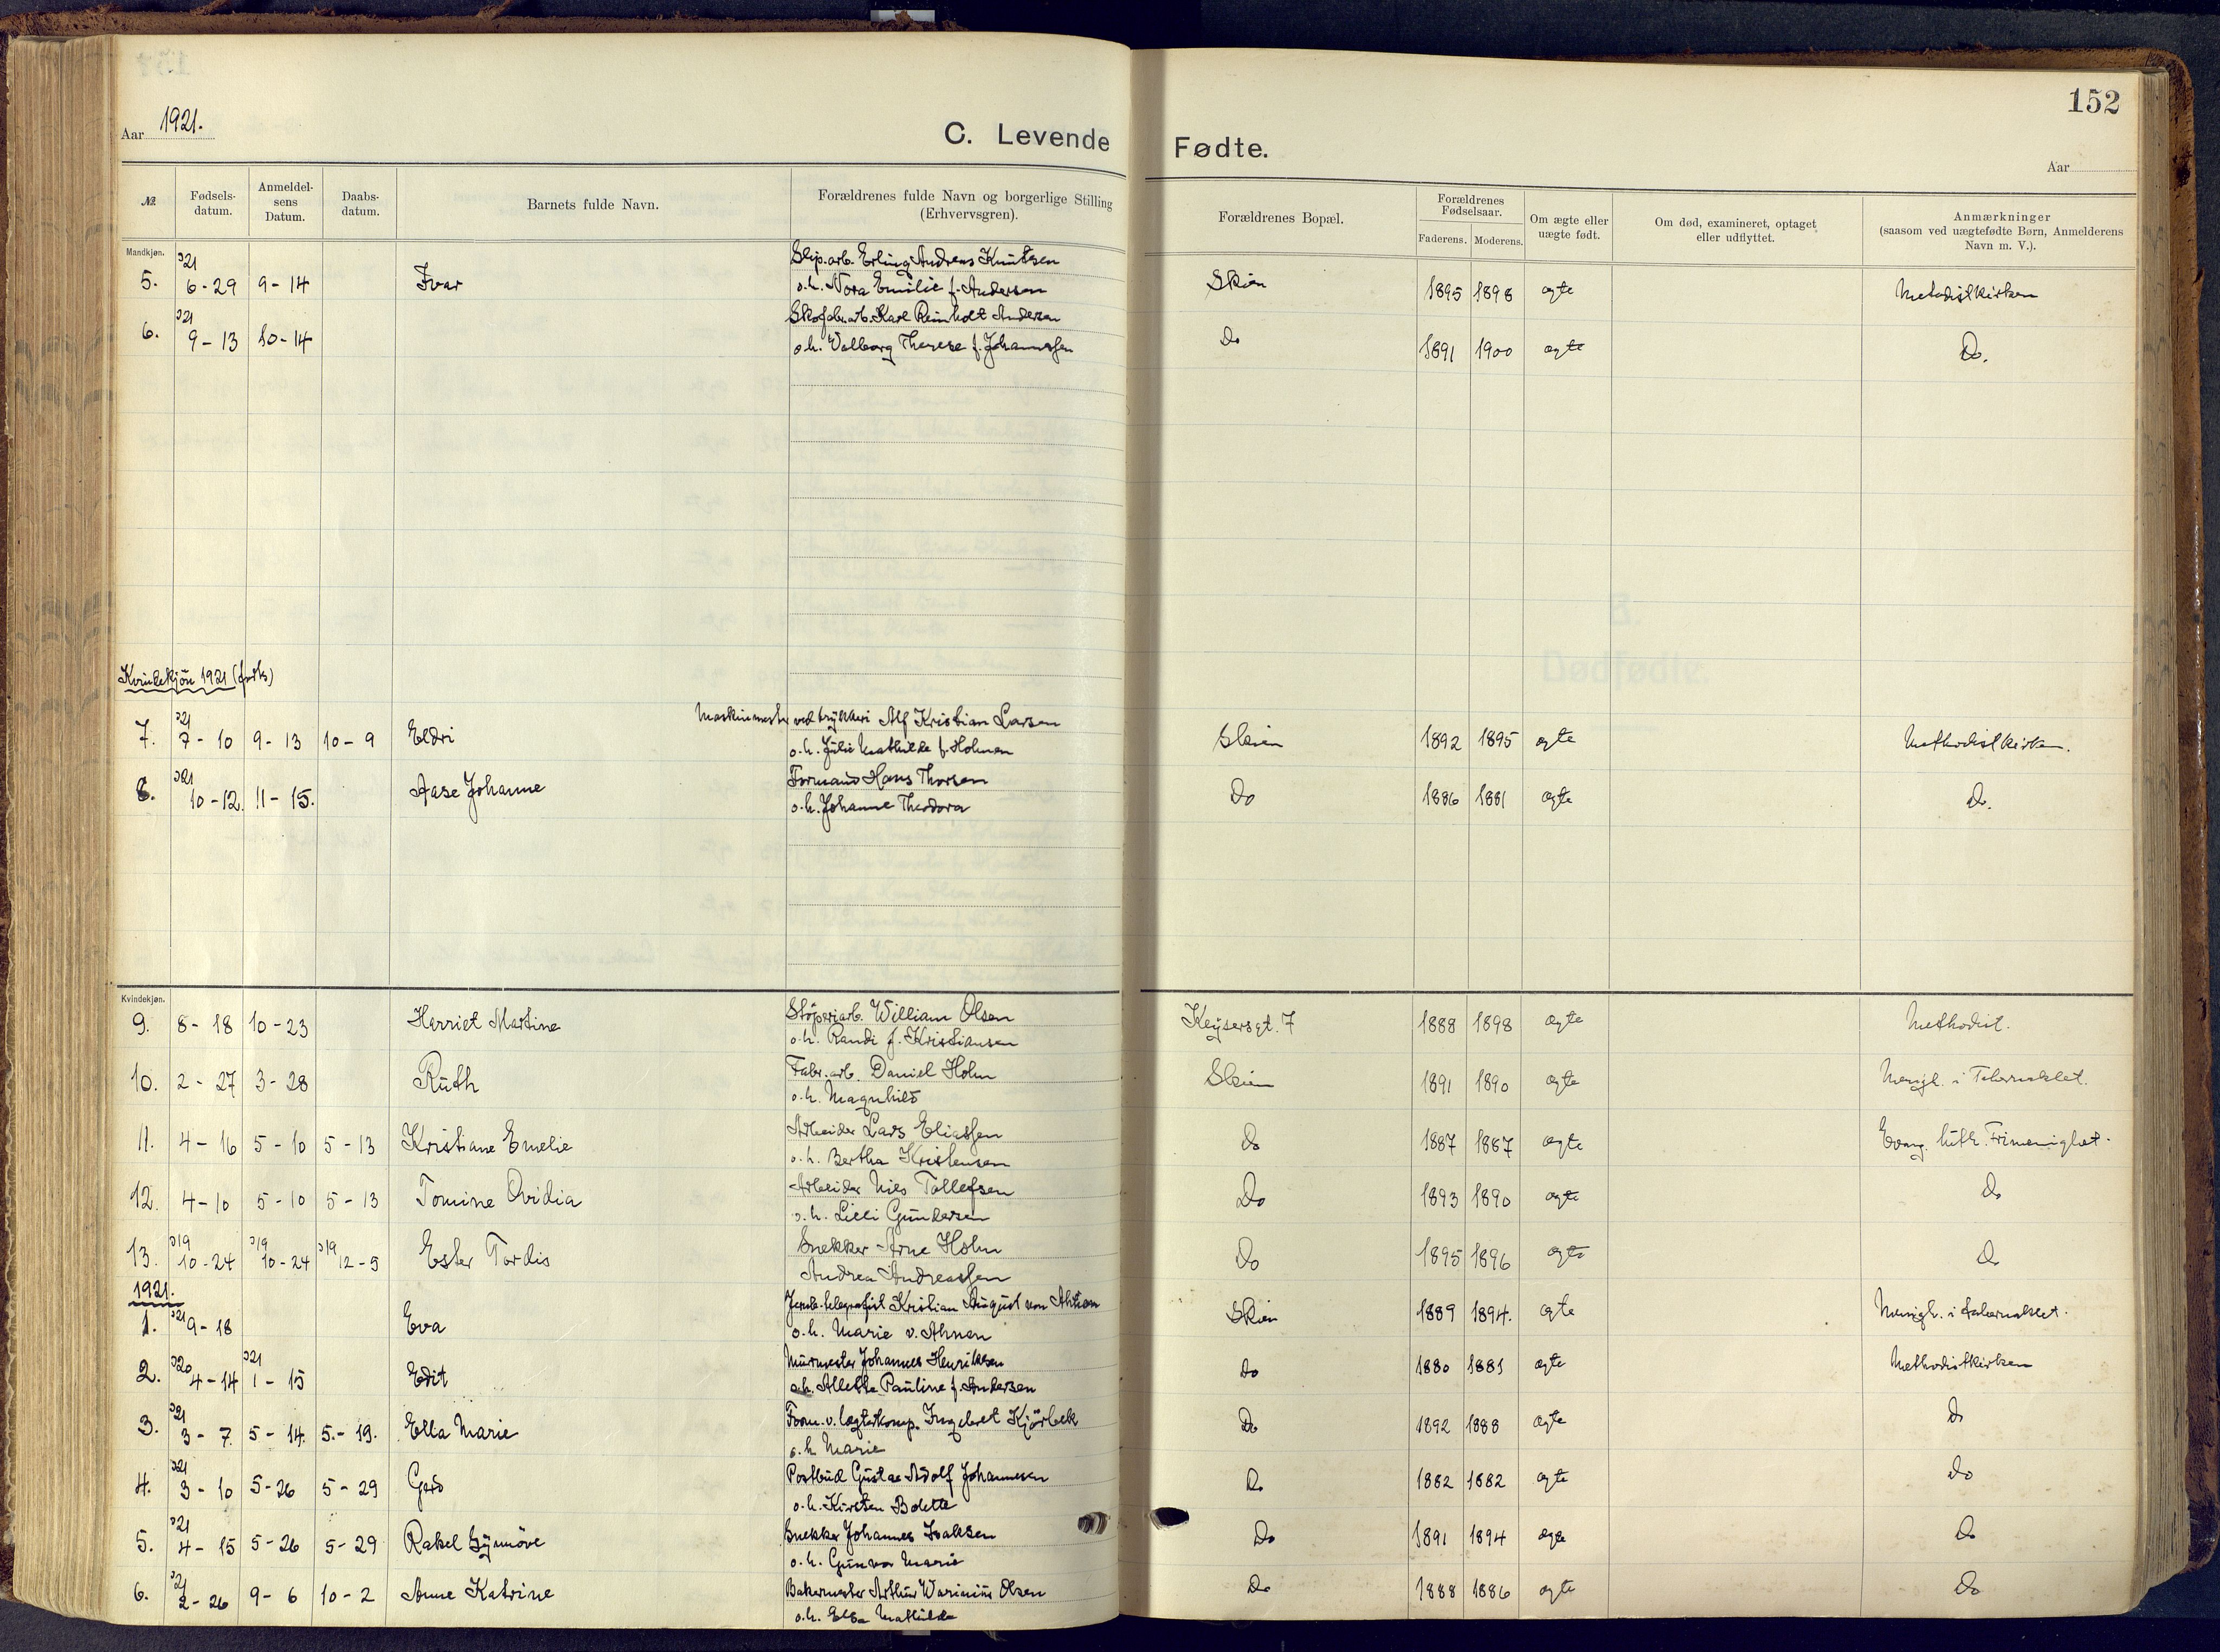 152
Aar 1921.
C. Levende Fødte.
Aar
№ Fødsels-datum. Anmeldel-sens Datum. Daabs-datum. Barnets fulde Navn. Forældrenes fulde Navn og borgerlige Stilling (Erhvervsgren). Forældrenes Bopæl. Forældrenes Fødselsaar. Faderens. Moderens. Om ægte eller uægte født. Om død, examineret, optaget eller udflyttet. Anmærkninger (saasom ved uægtefødte Børn, Anmelderens Navn m. V.).
Mandkjøn.
Slip.arb. Erling Andreas Knutsen
5. 21 6-29 9-14 Ivar o.h. Nora Emilie f. Andersen Skien 1895 1898 egte Metodistkirken
Skofabr.arb. Karl Reinholt Andersen
6. 21 9-13 10-14 o.h. Valborg Therese f. Johannessen Do 1891 1900 egte Do.
Kvindekjøn 1921 (forts)
Maskinmester ved trykkeri Alf Kristian Larsen
7. 21 7-10 9-13 10-9 Eldri o.h. Julie Mathilde f. Holmen Skien 1892 1895 egte Methodistkirken.
Formand Hans Thorsen
8. 21 10-12. 11-15. Aase Johanne o.h. Johanne Theodora Do 1886 1881 egte Do.
Kvindekjøn.
Støperiarb. William Olsen
9. 8-18 10-23 Harriet Martine o.h. Randi f. Kristiansen Keysersgt. 7 1888 1898 egte Methodist.
Fabr. arb. Daniel Holm
10. 2-27 3-28 Ruth o.h. Magnhild Skien 1891 1890 egte Menigh. i Tabernaklet.
Arbeider Lars Eliassen
11. 4-16 5-10 5-13 Kristiane Emelie o.h. Bertha Kristensen do 1887 1887 egte Evang. luth. Frimenighet.
Arbeider Nils Tollefsen
12. 4-10 5-10 5-13 Tomine Ovidia o.h. Lilli Gundersen Do 1893 1890 egte Do
Snekker Arne Holm
13. 19 10-24 19 10-24 19 12-5 Ester Tordis Andrea Andreassen Do 1895 1896 egte Do
1921.
telegrafist Kristian August von Ahnen
1. 21 9-18 Eva o.h. Marie v. Ahnen Skien 1889 1894. egte Menigh. i tabernaklet.
Murmester Johannes Henriksen
2. 20 4-14 21 1-15 Edit o.h. Alette Pauline f. Andersen do 1880 1881 egte Methodistkirken
Form. v. Ingebret Kjørbek
3. 21 3-7. 5-14. 5.-19. Ella Marie o.h. Marie Do 1892 1888 egte Do
Postbud Gustav Adolf Johannesen
4. 21 3-10 5-26 5-29 Gerd o.h. Kirsten Bolette Do 1882 1882 egte Do
Snekker Johannes Isaksen
5. 21 4-15 5-26 5-29 Rakel Synnøve o.h. Gunvor Marie Do 1891 1894 egte Do
Bakermester Arthur Olsen
6. 21 2-26 9-6 10-2 Anne Katrine o.h. Elsa Mathilde Do 1888 1886 egte Do